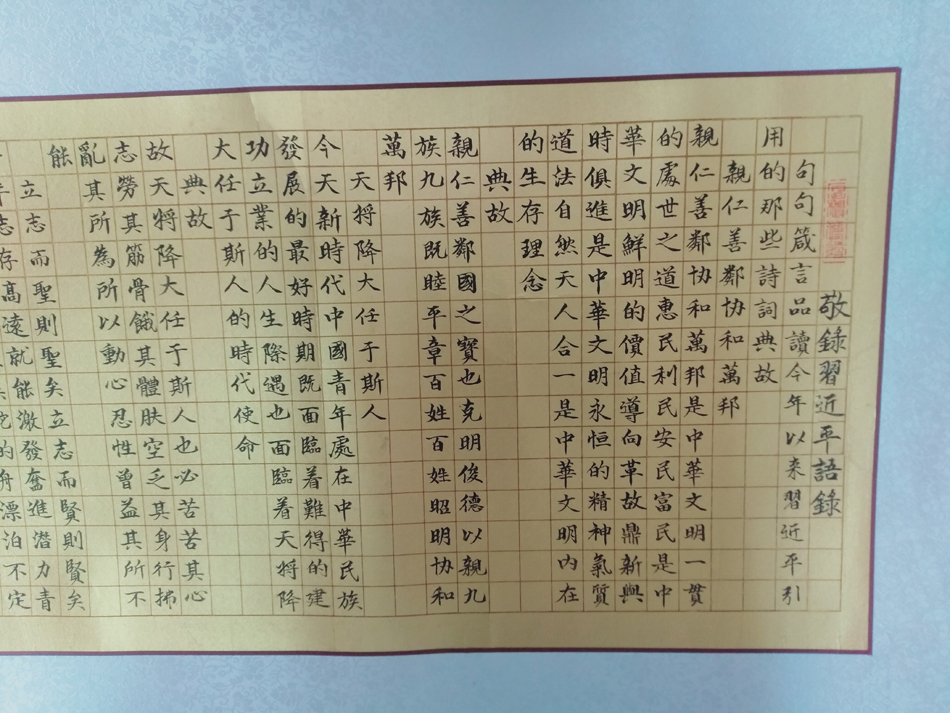 敬錄習近平語錄
句句箴言品讀今年以来習近平引
用的那些詩詞典故
親仁善鄰協和萬邦
親仁善鄰協和萬邦是中華文明一貫
的處世之道惠民利民安民富民是中
華文明鮮明的價值導向革故鼎新與
時俱進是中華文明永恒的精神氣質
道法自然天人合一是中華文明内在
的生存理念
典故
親仁善鄰國之寶也克明俊德以親九
族九族既睦平章百姓百姓昭明協和
萬邦
天将降大任于斯人
今天新時代中國青年處在中華民族
發展的最好時期既面臨着難得的建
功立業的人生際遇也面臨着天将降
大任于斯人的時代使命
典故
故天将降大任于斯人也必苦苦其心
志勞其筋骨餓其體肤空乏其身行拂
亂其所為所以動心忍性曾益其所不
能
立志而聖則聖矣立志而賢則賢矣
年志存高遠就能激發奮進潜力青
的舟漂泊不定